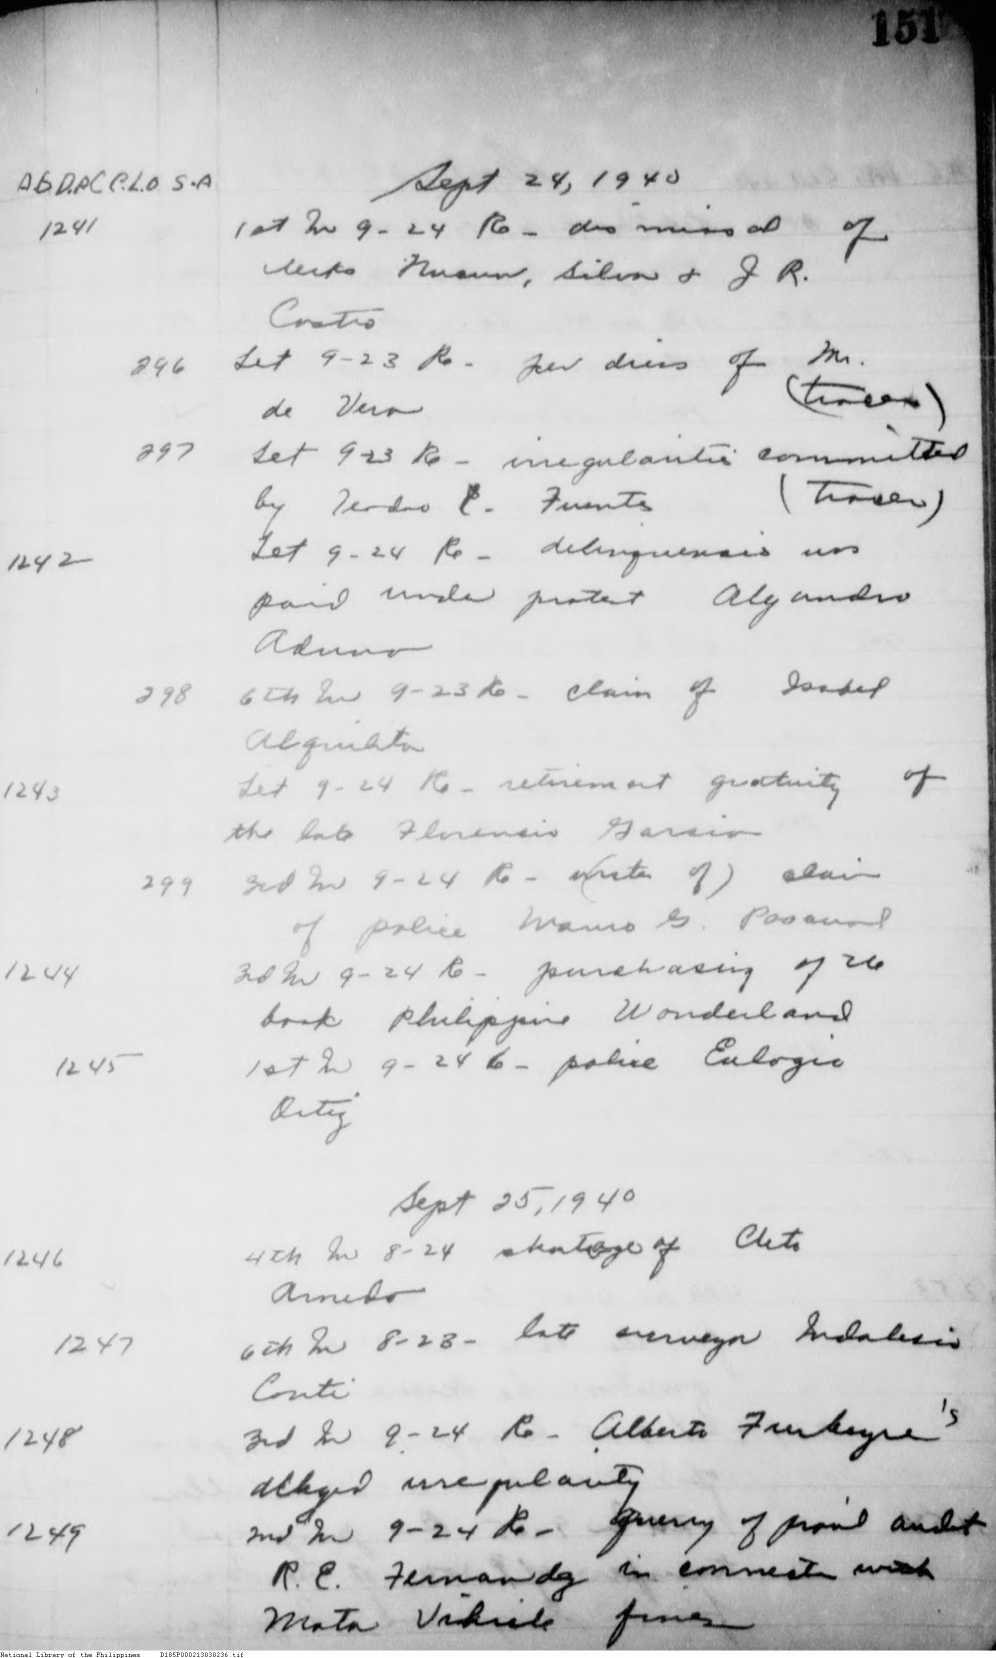 151
Sept 24, 1940
1241 1st In 9-24 Re- dismissal of
clerks Silva & J R.
Castro
296 Let 9-23 Re- per diems of Mr.
de Vera (tracer)
297 Let 9-23 Re- irregularities committed
by Teodro E. Fuentes (tracer)
1242 Let 9-24 Re- delinquencies
paid under protest Alejandro
298 6th In 9-23 Re- claim of Isabel
1243 Let 9-24 Re- retirement gratuity of
the late Florencio Garcia
299 3rd In 9-24 Re- claim
of police G.
1244 3rd In 9-24 Re- purchasing of the
book Philippine Wonderland
1245 1st In 9-24 Re- police Eulogio
Ortiz
Sept 25, 1940
1246 4th In 8-24 shortage of Cleto
Arnedo
1247 6th In 8-23- late surveyor Indalecio
Conti
1248 3rd In 9-24 Re- Alberto
alleged irregularity
1249 2nd In 9-24 Re- query of prov'l audit
R. E. Fernandez in connection with
Motor Vehicle fines
National Library of the Philippines D185P000213838236.tif